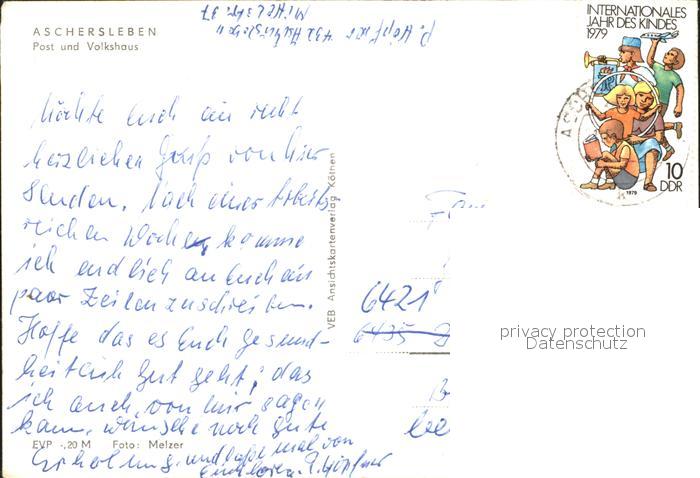 ASCHERSLEBEN
Post und Volkshaus
INTERNATIONALES
JAHR DES KINDES
1979
10
DDR
1979
Möchte Euch ein recht
herzlichen Gruß von hier
Senden. Nach einer Arbeits
reichen Woche komme
ich endlich an Euch ein
paar Zeilen zuschreiben.
Hoffe das es Euch gesund-
heitlich gut geht, das
ich auch von mir sagen
kann. wünsche noch gute
Erholung. und laßt mal von
Euch hören.
EVP -,20 M Foto: Melzer
VEB Ansichtskartenverlag Kölnen
6421
6435
privacy protection
Datenschutz